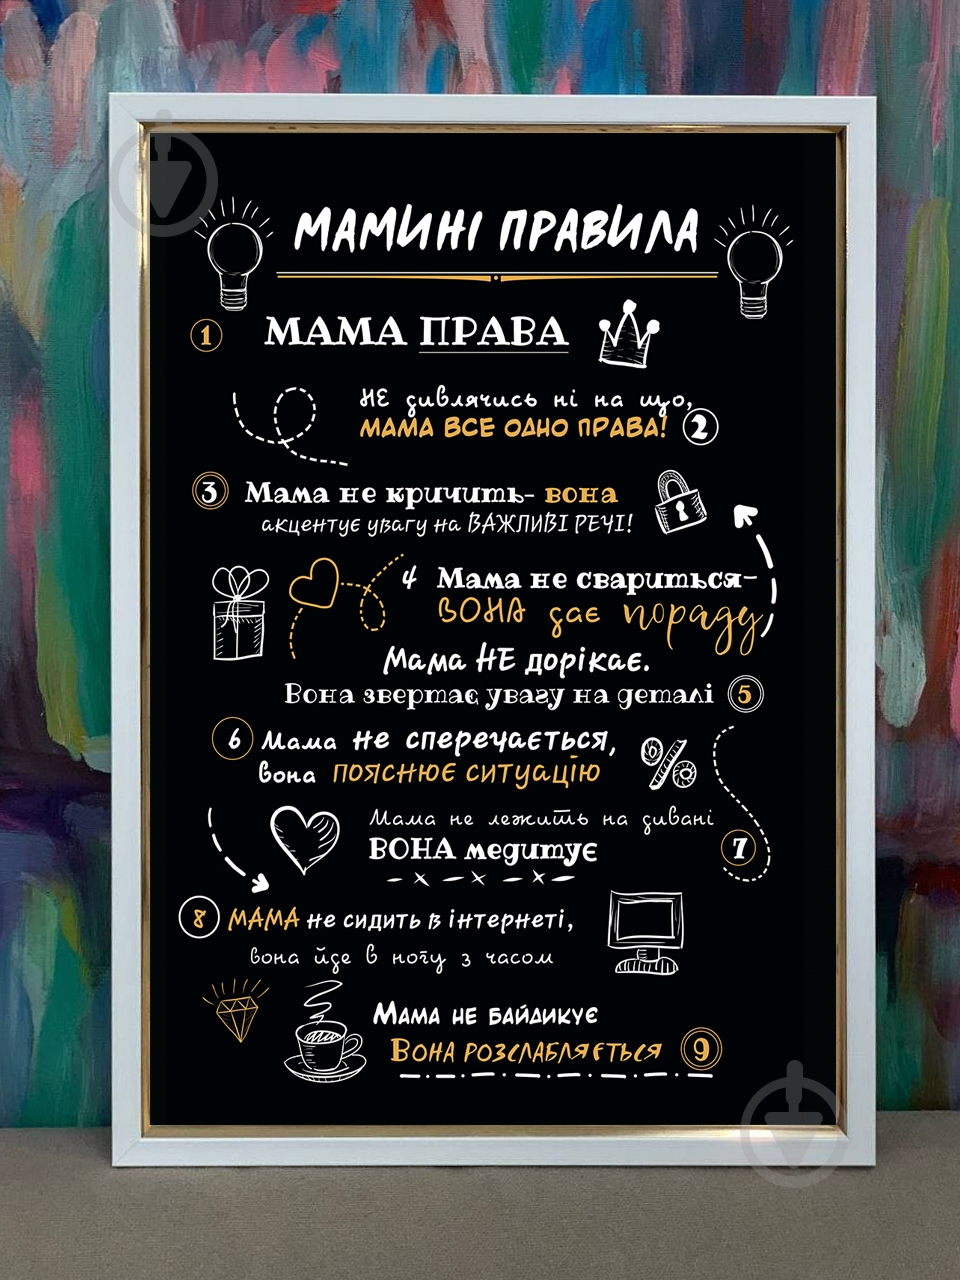 МАМИНІ ПРАВИЛА
1 МАМА ПРАВА
НЕ дивлячись ні на що,
МАМА ВСЕ ОДНО ПРАВА! 2
3 Мама не кричить- вона
акцентує увагу на ВАЖЛИВІ РЕЧІ!
4 Мама не свариться-
ВОНА дає пораду
Мама НЕ дорікає.
Вона звертає увагу на деталі 5
6 Мама не сперечається,
вона ПОЯСНЮЄ СИТУАЦІЮ
Мама не лежить на дивані
ВОНА медитує 7
8 МАМА не сидить в інтернеті,
вона йде в ногу з часом
МАМА НЕ БАЙДИКУЄ
ВОНА РОЗСЛАБЛЯЄТЬСЯ 9